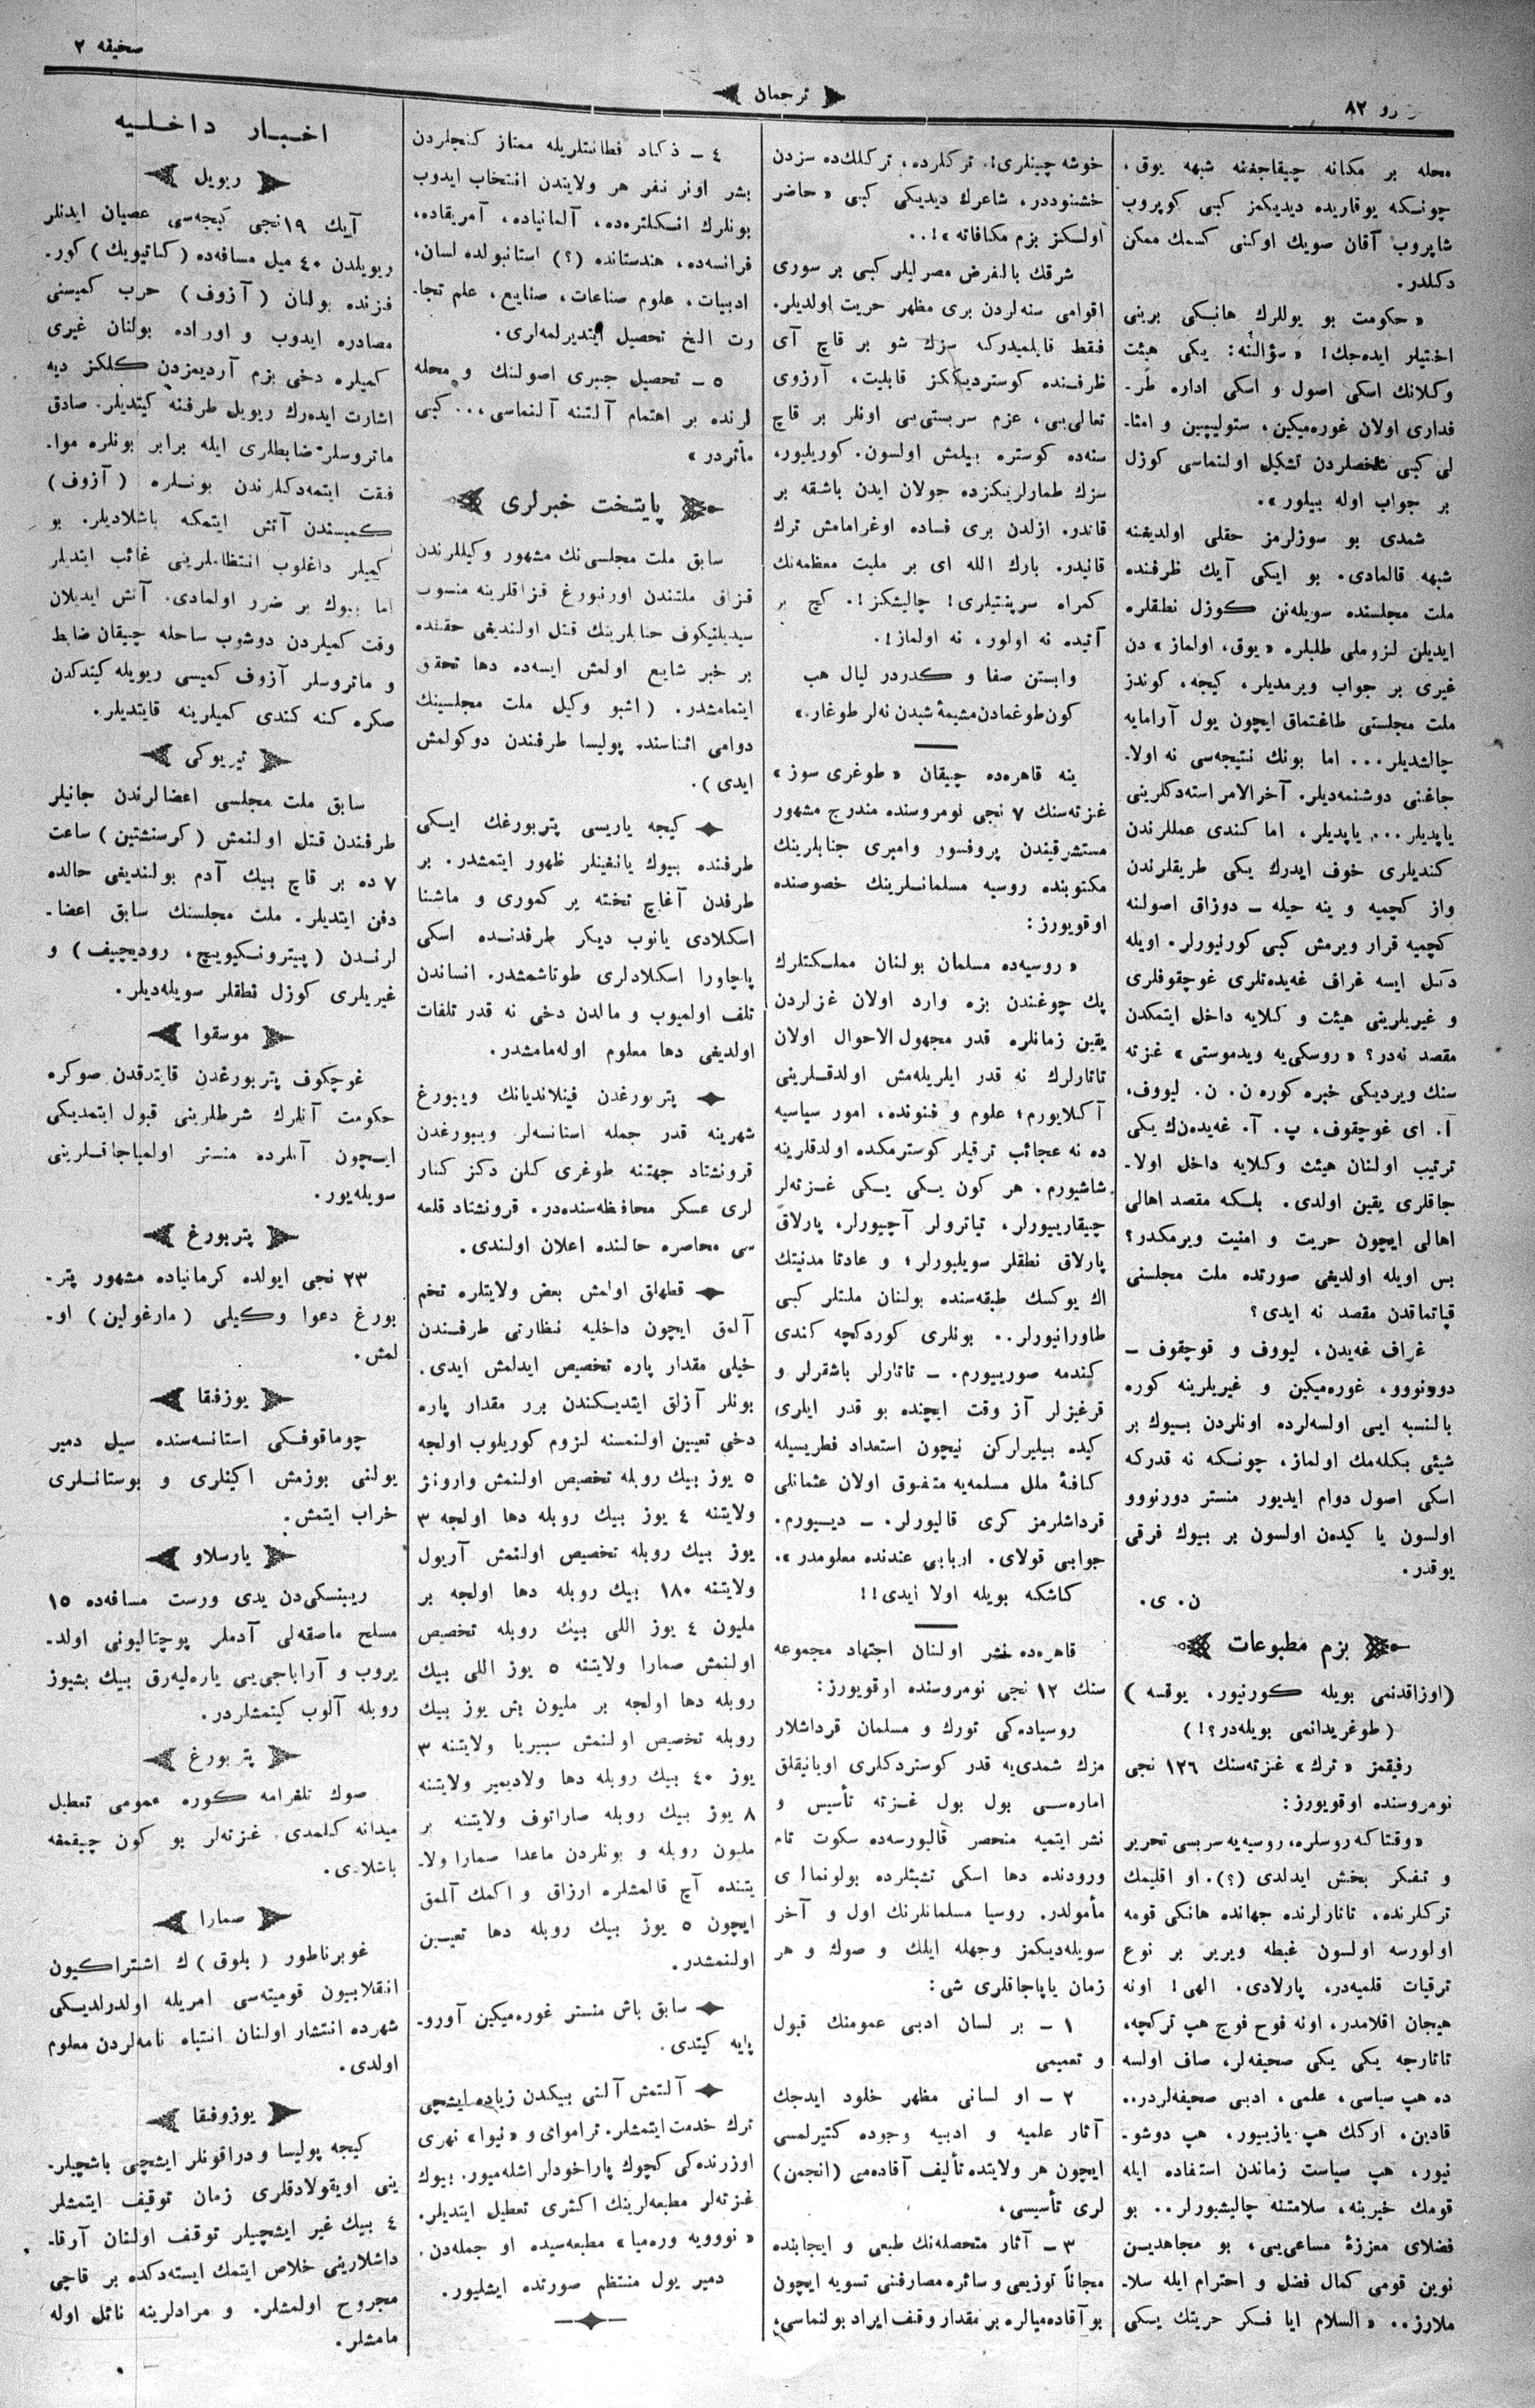 صحیفه ۲
ترجمان
رو ۸۲
محله بر مکانه چیقاجغنه شبهه یوق،
چونکه یوقاریده دیدیکمز کبی کوپروب
شاپروب آقان صویك اوکنی کسمك ممکن
دکلدر.
« حکومت بو یوللرك هانکی برینی
اختیلر ایده‌جك! « سؤالنه: یکی هیئت
وکلانك اسکی اصول و اسکی اداره طر-
فداری اولان غوره‌میکین، ستولیپین و امثا-
لی کبی شخصلردن تشکیل اولنماسی کوزل
بر جواب اوله بیلور ».
شمدی بو سوزلرمز حقلی اولدیغنه
شبهه قالمادی. بو ایکی آیك ظرفنده
ملت مجلسنده سویله‌نن کوزل نطقلره
ایدیلن لزوملی طلبلره « یوق، اولماز » دن
غیری بر جواب ویرمدیلر، کیجه، کوندز
ملت مجلسنی طاغتماق ایچون یول آرامایه
چالشدیلر... اما بونك نتیجه‌سی نه اولا-
جاغنی دوشنمه‌دیلر. آخرالامر استه‌دکلرینی
یاپدیلر... یاپدیلر، اما کندی عمللرندن
کندیلری خوف ایدرك یکی طریقلرندن
واز کچمیه و ینه حیله – دوزاق اصولنه
کچمیه قرار ویرمش کبی کورنیورلر. اویله
دکل ایسه غراف غه‌یده‌نلری غوچقوفلری
و غیریلرینی هیئت و کلایه داخل ایتمکدن
مقصد نه‌در؟ « روسکی‌یه ویدموستی » غزته
سنك ویردیکی خبره کوره ن. ن. لیووف،
آ. ای غوچقوف، پ. آ. غه‌یده‌ن‌ك یکی
ترتیب اولنان هیئت وکلایه داخل اولا-
جاقلری یقین اولدی. بلکه مقصد اهالی
اهالی ایچون حریت و امنیت ویرمکدر؟
بس اویله اولدیغی صورتده ملت مجلسنی
قپاتماقدن مقصد نه ایدی؟
غراف غه‌یدن، لیووف و قوچقوف –
دورنووو، غوره‌میکین و غیریلرینه کوره
بالنسبه ایی اولسه‌لرده اونلردن بیوك بر
شیئی بکله‌مك اولماز، چونکه نه قدرکه
اسکی اصول دوام ایدیور منستر دورنووو
اولسون یا کیده‌ن اولسون بر بیوك فرقی
یوقدر.
ن. ی.
بزم مطبوعات
(اوزاقدنمی بویله کورنیور، یوقسه)
(طوغریدانمی بویله‌در؟!)
رفیقمز « ترك » غزته‌سنك ۱۲۶ نجی
نومروسنده اوقویورز:
« وقتاکه روسلره، روسیه‌یه سربسی تحریر
و تفکر بخش ایدلدی (؟). او اقلیمك
ترکلرنده، تاتارلرنده جهانده هانکی قومه
اولورسه اولسون غبطه ویریر بر نوع
ترقیات قلمیه‌در، پارلادی. الهی! اونه
هیجان اقلامدر، اونه فوج فوج هپ ترکچه،
تاتارجه یکی یکی صحیفه‌لر، صاف اولسه
ده هپ سیاسی، علمی، ادبی صحیفه‌لردر..
قادین، ارکك هپ یازییور، هپ دوشو-
نیور، هپ سیاست زماندن استفاده ایله
قومك خیرینه، سلامتنه چالیشیورلر.. بو
فضلای معززهٔ مساعی‌یی، بو مجاهدین
نوین قومی کمال فضل و احترام ایله سلا-
ملارز.. « السلام ایا فکر حریتك یکی
خوشه چینلری!. ترکلرده، ترکلك‌ده سزدن
خشنوددر، شاعرك دیدیکی کبی « حاضر
اولسکز بزم مکافاته »!..
شرقك بالفرض مصرلیلر کبی بر سوری
اقوامی سنه‌لردن بری مظهر حریت اولدیلر.
فقط قابلمیدرکه سزك شو بر قاچ آی
ظرفنده کوستردیککز قابلیت، آرزوی
تعالی‌یی، عزم سربستی‌یی اونلر بر قاچ
سنه‌ده کوستره بیلمش اولسون. کوریلیور،
سزك طمارلریکزده جولان ایدن باشقه بر
قاندر. ازلدن بری فساده اوغرامامش ترك
قانیدر. بارك الله ای بر ملیت معظمه‌نك
کمراه سرپنتیلری! چالیشکز!. کچ بر
آتیده نه اولور، نه اولماز!.
وابستن صفا و کدردر لیال هب
کون طوغمادن مشیمهٔ شبدن نه‌لر طوغار.»
ینه قاهره‌ده چیقان « طوغری سوز »
غزته‌سنك ۷ نجی نومروسنده مندرج مشهور
مستشرقیندن پروفسور وامبری جنابلرینك
مکتوبنده روسیه مسلمانلرینك خصوصنده
اوقویورز:
« روسیه‌ده مسلمان بولنان مملکتلرك
پك چوغندن بزه وارد اولان غزلردن
یقین زمانلره قدر مجهول الاحوال اولان
تاتارلرك نه قدر ایلریله‌مش اولدقلرینی
آکلایورم؛ علوم و فنونده، امور سیاسیه
ده نه عجائب ترقیلر کوسترمکده اولدقلرینه
شاشیورم. هر کون یکی یکی غزته‌لر
چیقارییورلر، تیاترولر آچیورلر، پارلاق
پارلاق نطقلر سویلیورلر؛ و عادتا مدنیتك
اك یوکسك طبقه‌سنده بولنان ملتلر کبی
طاورانیورلر.. بونلری کوردکچه کندی
کندمه صورییورم. – تاتارلر باشقرلر و
قرغیزلر آز وقت ایچنده بو قدر ایلری
کیده بیلیرلرکن نیچون استعداد فطریسیله
کافهٔ ملل مسلمه‌یه متفوق اولان عثمانلی
قرداشلرمز کری قالیورلر. – دییورم.
جوابی قولای. اربابی عندنده معلومدر ».
کاشکه بویله اولا ایدی!!
قاهره‌ده نشر اولنان اجتهاد مجموعه
سنك ۱۲ نجی نومروسنده اوقویورز:
روسیاده‌کی تورك و مسلمان قرداشلار
مزك شمدی‌یه قدر کوستردکلری اویانیقلق
اماره‌سی بول بول غزته تأسیس و
نشر ایتمیه منحصر قالیورسه‌ده سکوت تام
ورودنده دها اسکی تشبثلرده بولونمالری
مأمولدر. روسیا مسلمانلرنك اول و آخر
سویله‌دیکمز وجهله ایلك و صوك و هر
زمان یاپاجاقلری شی:
۱ – بر لسان ادبی عمومنك قبول
و تعمیمی
۲ – او لسانی مظهر خلود ایدجك
آثار علمیه و ادبیه وجوده کتیرلمسی
ایچون هر ولایتده تألیف آقاده‌می (انجمن)
لری تأسیسی،
۳ – آثار متحصله‌نك طبعی و ایجابنده
مجاناً توزیعی و سائره مصارفنی تسویه ایچون
بو آقاده‌میالره بر مقدار وقف ایراد بولنماسی؛
٤ – ذکاء فطانتلریله ممتاز کنجلردن
بشر اونر نفر هر ولایتدن انتخاب ایدوب
بونلرك انکلتره‌ده، آلمانیاده، آمریقاده،
فرانسه‌ده، هندستانده (؟) استانبولده لسان،
ادبیات، علوم صناعات، صنایع، علم تجا-
رت الخ تحصیل ایتدیرلمه‌لری.
۵ – تحصیل جبری اصولنك و محله
لرنده بر اهتمام آلتنه آلنماسی،... کبی
مأثردر »
پایتخت خبرلری
سابق ملت مجلسی‌نك مشهور وکیللرندن
قزاق ملتندن اورنبورغ قزاقلرینه منسوب
سیدیلنیکوف جنابلرینك قتل اولندیغی حقنده
بر خبر شایع اولمش ایسه‌ده دها تحقق
ایتمامشدر. (اشبو وکیل ملت مجلسینك
دوامی اثناسنده پولیسا طرفندن دوکولمش
ایدی).
کیجه یاریسی پتربورغك ایکی
طرفنده بیوك یانغینلر ظهور ایتمشدر. بر
طرفدن آغاچ تخته یر کموری و ماشنا
اسکلادی یانوب دیکر طرفدنده اسکی
پاچاورا اسکلادلری طوتاشمشدر. انساندن
تلف اولمیوب و مالدن دخی نه قدر تلفات
اولدیغی دها معلوم اوله‌مامشدر.
پتربورغدن فینلاندیانك ویبورغ
شهرینه قدر جمله استانسه‌لر ویبورغدن
قرونشتاد جهتنه طوغری کلن دکز کنار
لری عسکر محافظه‌سنده‌در. قرونشتاد قلعه
سی محاصره حالنده اعلان اولندی.
قطلق اولمش بعض ولایتلره تخم
آلمق ایچون داخلیه نظارتی طرفندن
خیلی مقدار پاره تخصیص ایدلمش ایدی.
بونلر آزلق ایتدیکندن برر مقدار پاره
دخی تعیین اولنمسنه لزوم کوریلوب اولجه
۵ یوز بیك روبله تخصیص اولنمش وارونژ
ولایتنه ٤ یوز بیك روبله دها اولجه ۳
یوز بیك روبله تخصیص اولنمش آریول
ولایتنه ۱۸۰ بیك روبله دها اولجه بر
ملیون ٤ یوز اللی بیك روبله تخصیص
اولنمش صمارا ولایتنه ۵ یوز اللی بیك
روبله دها اولجه بر ملیون بش یوز بیك
روبله تخصیص اولنمش سیبریا ولایتنه ۳
یوز ٤۰ بیك روبله دها ولادیمیر ولایتنه
۸ یوز بیك روبله صاراتوف ولایتنه بر
ملیون روبله و بونلردن ماعدا صمارا ولا-
یتنده آچ قالمشلره ارزاق و اکمك آلمق
ایچون ۵ یوز بیك روبله دها تعیین
اولنمشدر.
سابق باش منستر غوره‌میکین آورو-
پایه کیتدی.
آلتمش آلتی بیکدن زیاده ایشچی
ترك خدمت ایتمشلر. تراموای و « نیوا » نهری
اوزرنده‌کی کچوك پاراخودلر اشله‌میور. بیوك
غزته‌لر مطبعه‌لرینك اکثری تعطیل ایتدیلر.
« نوویه وره‌میا » مطبعه‌سیده او جمله‌دن.
دمیر یول منتظم صورتده ایشلیور.
اخبار داخلیه
ریویل
آیك ۱۹ نجی کیجه‌سی عصیان ایدنلر
ریویلدن ٤۰ میل مسافه‌ده (کاتیویك) کور-
فزنده بولنان (آزوف) حرب کمیسنی
مصادره ایدوب و اوراده بولنان غیری
کمیلره دخی بزم آردیمزدن کلکز دیه
اشارت ایده‌رك ریویل طرفنه کیتدیلر. صادق
ماتروسلر ضابطلری ایله برابر بونلره موا-
فقت ایتمه‌دکلرندن بونلره (آزوف)
کمیسندن آتش ایتمکه باشلادیلر. بو
کمیلر داغلوب انتظاملرینی غائب ایتدیلر
اما بیوك بر ضرر اولمادی. آتش ایدیلان
وقت کمیلردن دوشوب ساحله چیقان ضابط
و ماتروسلر آزوف کمیسی ریویله کیتدکدن
صکره کنه کندی کمیلرینه قایتدیلر.
تیریوکی
سابق ملت مجلسی اعضالرندن جانیلر
طرفندن قتل اولنمش (کرسنشتین) ساعت
۷ ده بر قاچ بیك آدم بولندیغی حالده
دفن ایتدیلر. ملت مجلسنك سابق اعضا-
لرندن (پیترونکیویچ، رودیچیف) و
غیریلری کوزل نطقلر سویله‌دیلر.
موسقوا
غوچکوف پتربورغدن قایتدقدن صوکره
حکومت آنلرك شرطلرینی قبول ایتمدیکی
ایچون آنلرده منستر اولمیاجاقلرینی
سویله‌یور.
پتربورغ
۲۳ نجی ایولده کرمانیاده مشهور پتر-
بورغ دعوا وکیلی (مارغولین) او-
لمش.
یوزفقا
چوماقوفکی استانسه‌سنده سیل دمیر
یولنی بوزمش اکینلری و بوستانلری
خراب ایتمش.
یارسلاو
ریبنسکی‌دن یدی ورست مسافه‌ده ۱۵
مسلح ماصقه‌لی آدملر پوچتالیونی اولد-
یروب و آراباجی‌یی یاره‌لیه‌رق بیك بشیوز
روبله آلوب کیتمشلردر.
پتربورغ
صوك تلغرامه کوره عمومی تعطیل
میدانه کلمدی. غزته‌لر بو کون چیقمغه
باشلادی.
صمارا
غوبرناطور (بلوق) ك اشتراکیون
انقلابیون قومیته‌سی امریله اولدرلدیکی
شهرده انتشار اولنان انتباه نامه‌لردن معلوم
اولدی.
یوزوفقا
کیجه پولیسا و دراقونلر ایشچی باشچیلر-
ینی اویقولادقلری زمان توقیف ایتمشلر
٤ بیك غیر ایشچیلر توقف اولنان آرقا-
داشلارینی خلاص ایتمك ایسته‌دکده بر قاچی
مجروح اولمشلر. و مرادلرینه نائل اوله
مامشلر.